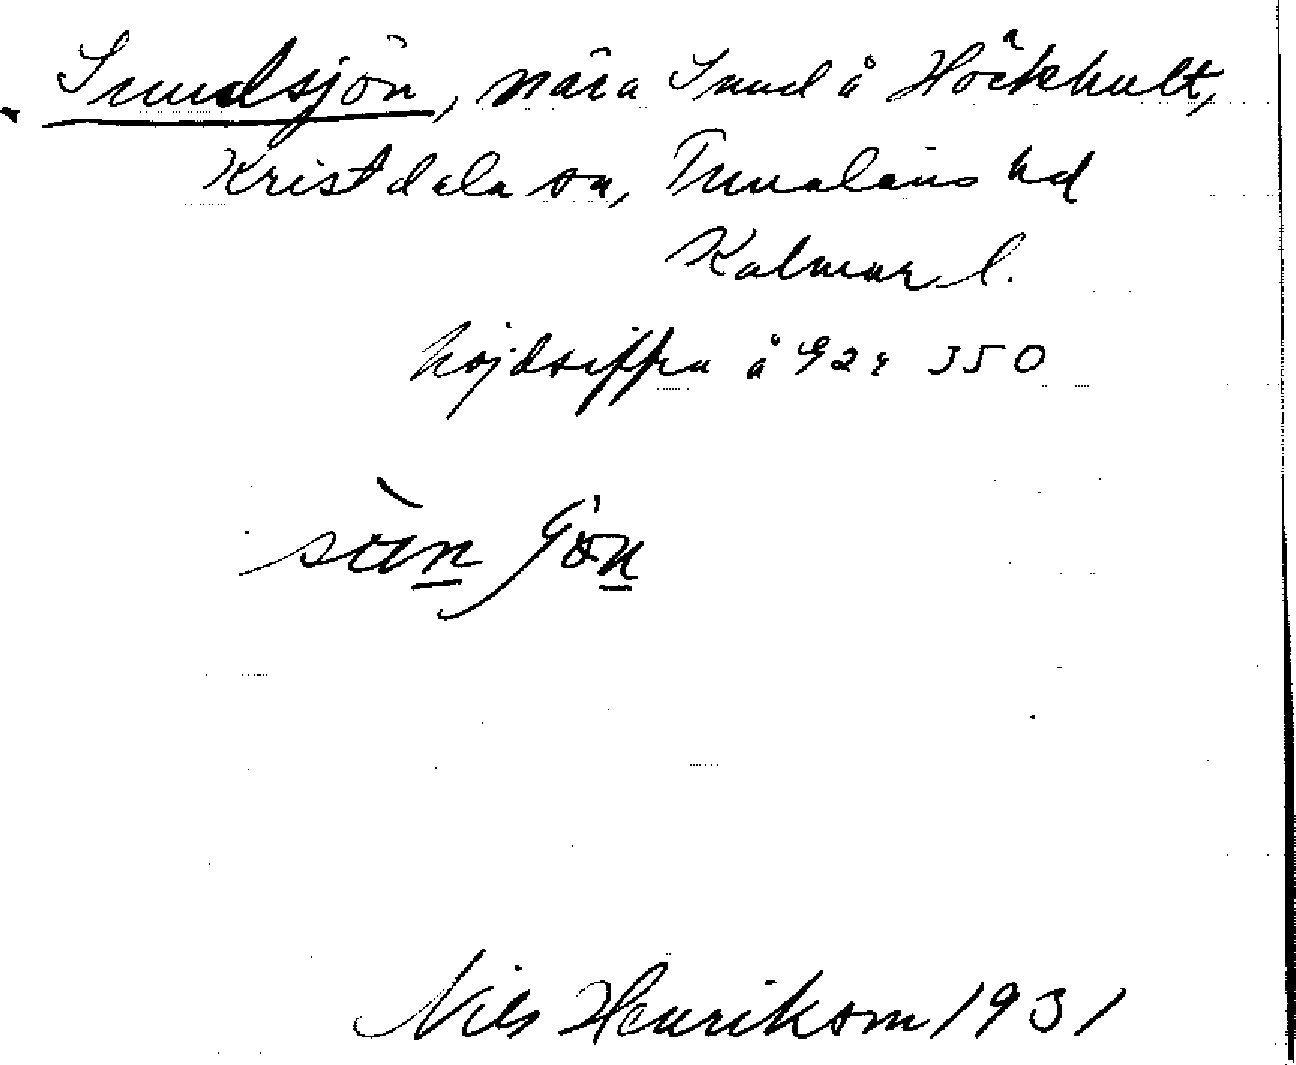 Sundsjön, nära Sund å Höckhult,
Kristdala sn, Tunaläns hd
Kalmar l.
höjdsiffra å G2: 350
Nils Henrikson 1931